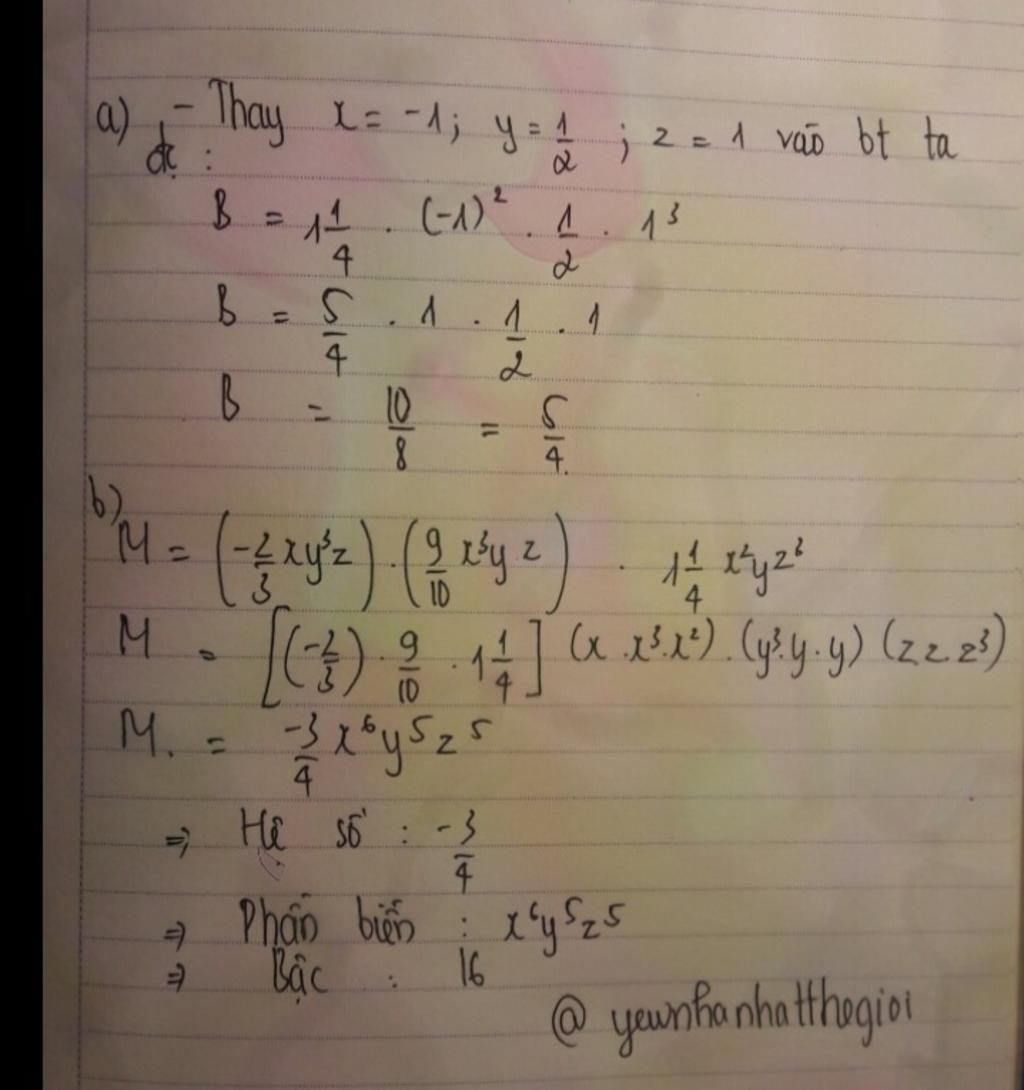 a) - Thay x = -1; y = 1/2 ; z = 1 vào bt ta
đc :
B = 1 1/4 . (-1)² . 1/2 . 1³
B = 5/4 . 1 . 1/2 . 1
B = 10/8 = 5/4.
b)
M = (-2/3 xy³z) . (9/10 x³y z) . 1 1/4 x²yz³
M = [(-2/3) . 9/10 . 1 1/4] (x . x³. x²) . (y³. y . y) (z z . z³)
M. = -3/4 x⁶y⁵z⁵
⇒ Hệ số : -3/4
⇒ Phần biến : x⁶y⁵z⁵
⇒ Bậc : 16
@ yewnhanhatthegioi